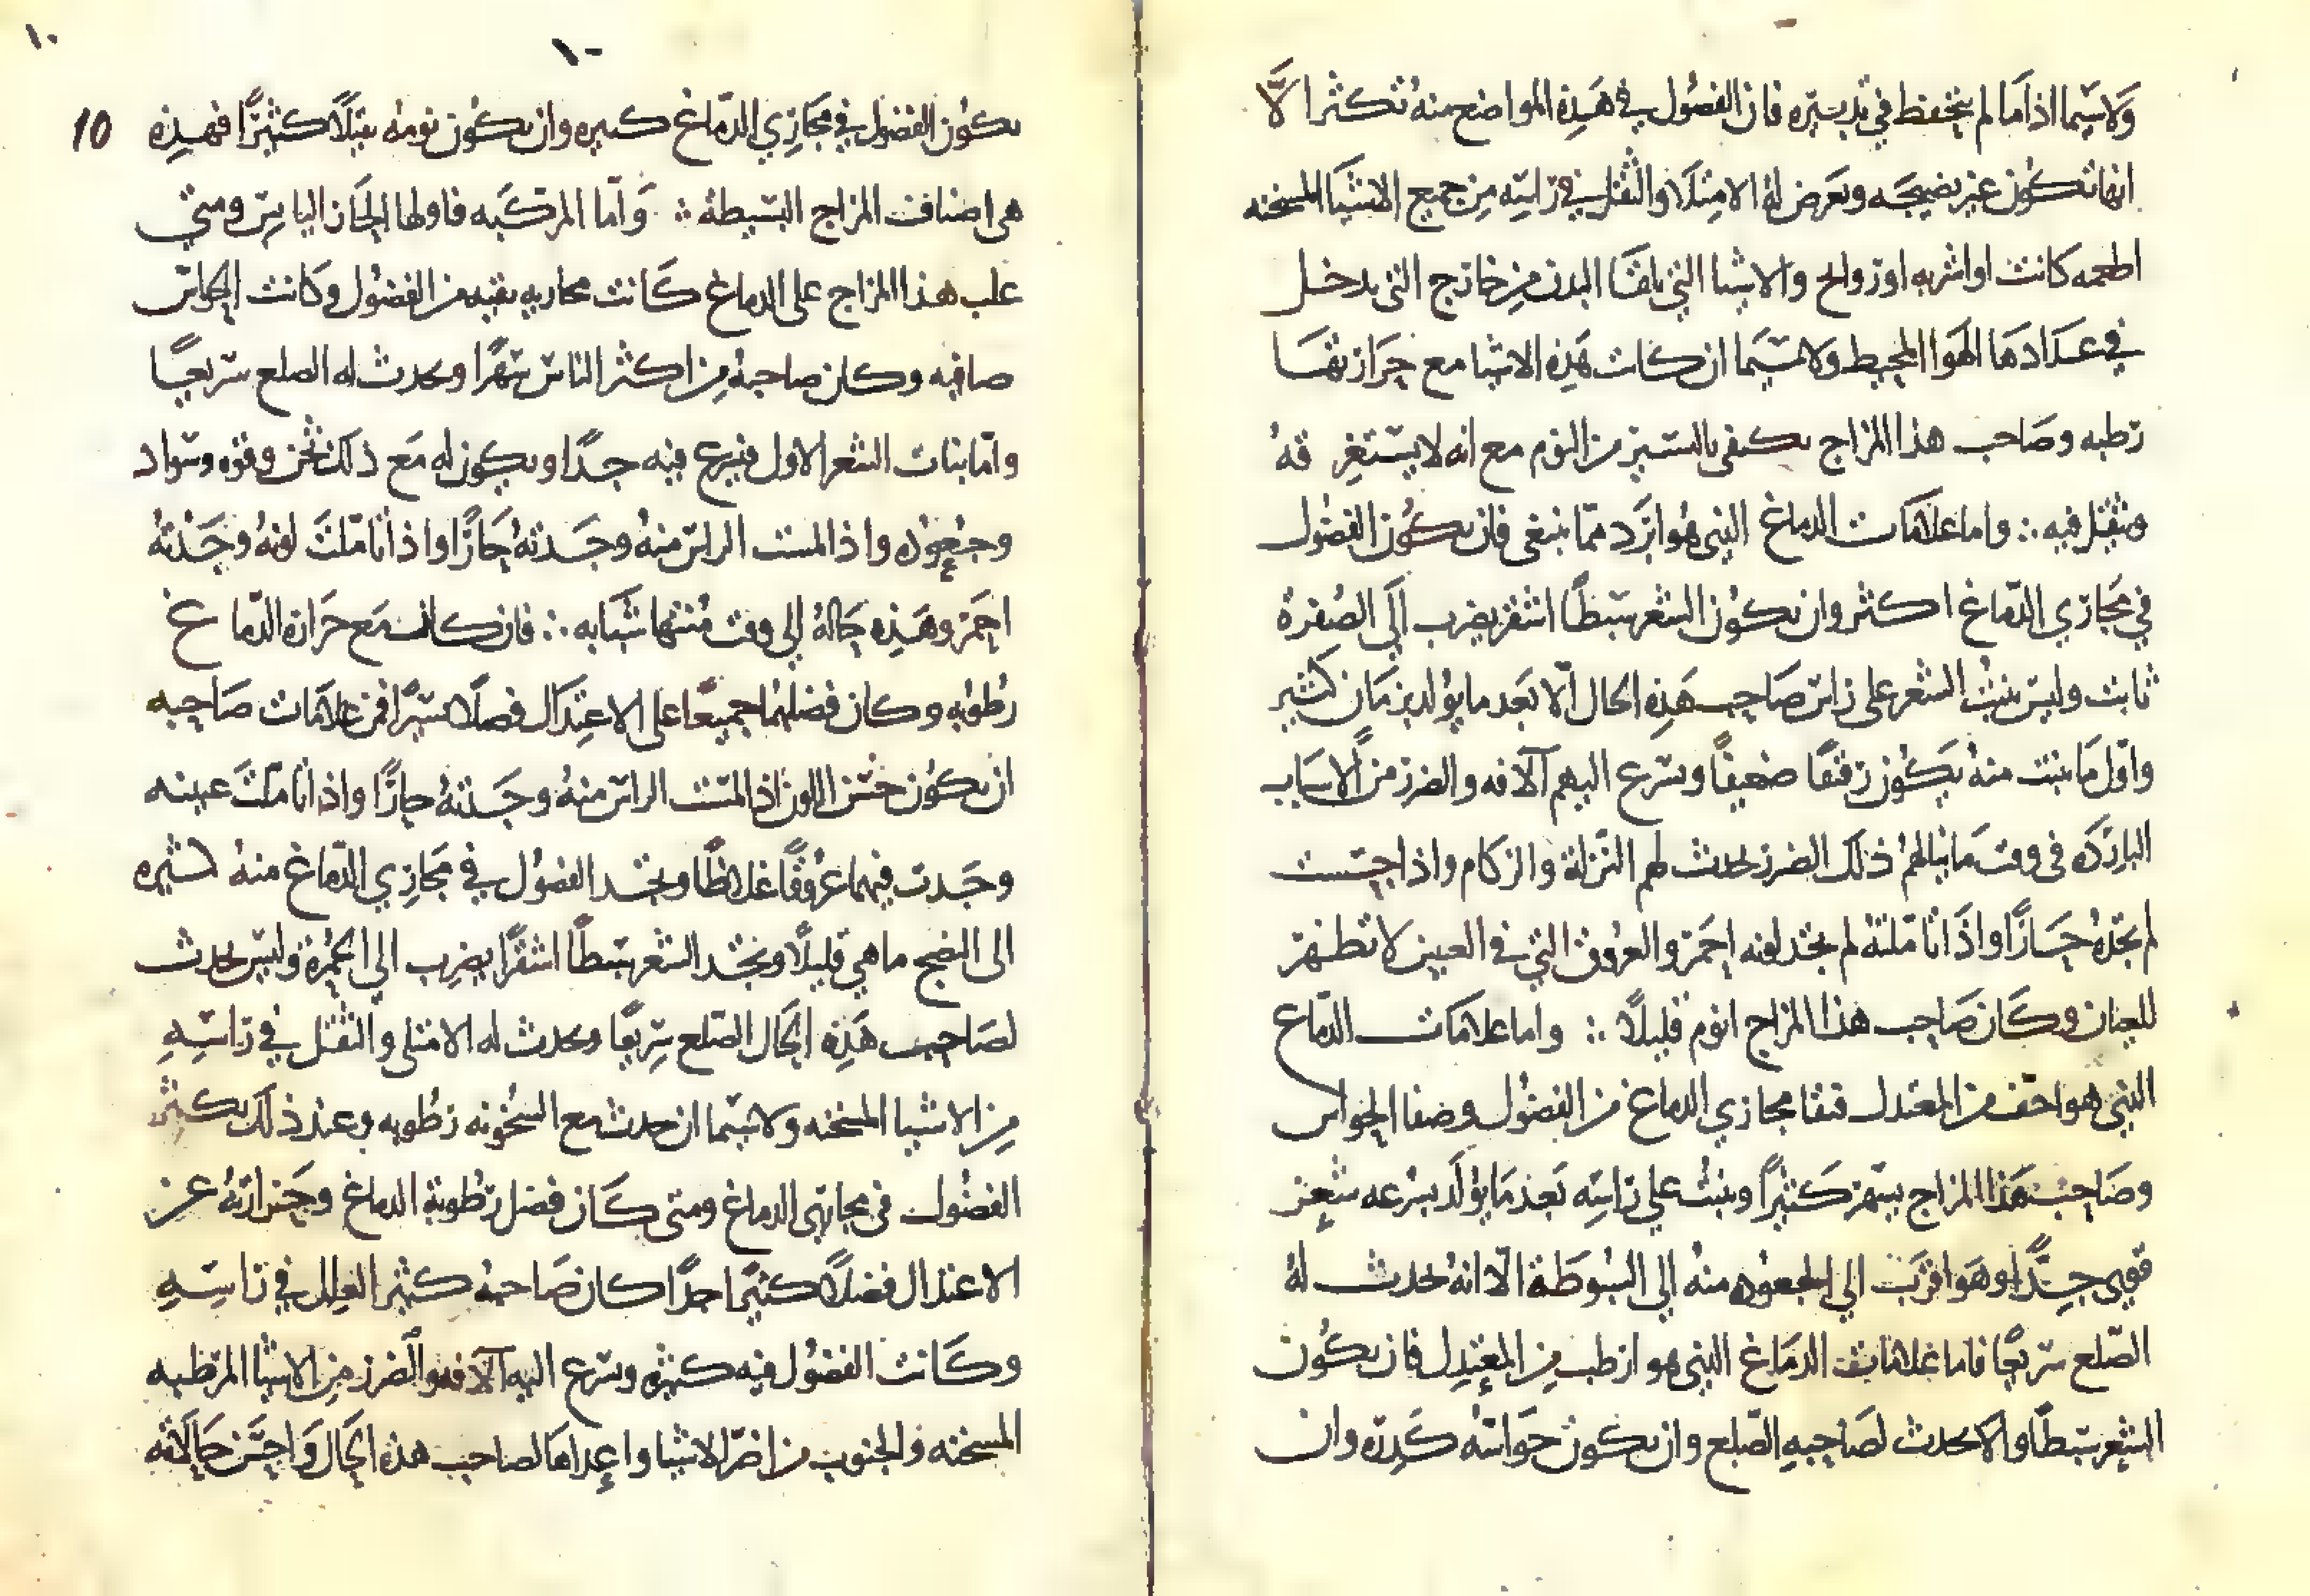 ولاسيما اذا ما لم يتحفظ في تدبيره فان الفضول في هذه المواضع منه تكثر الا
انها تكون غير نضيجه ويعرض له الامتلا والثقل في راسه من جميع الاشيا المسخنه
اطعمه كانت او اشربه او روايح والاشيا التي تلقا البدن من خارج التي يدخل
في عدادها الهوا المحيط ولاسيما ان كانت هذه الاشيا مع حرارتها
رطبه وصاحب هذا المزاج يكتفي باليسير من النوم مع انه لا يستغرقه
ويثقل فيه ∴ واما علامات الدماغ الذي هو ابرد مما ينبغي فان يكون الفضول
في مجاري الدماغ اكثر وان يكون الشعر سبطًا اشقر يضرب الي الصفرة
ثابت وليس ينبت الشعر على راس صاحب هذه الحال الا بعد ما يولد بزمان كثير
واول ما ينبت منه يكون رقيقا ضعيفًا ويسرع اليهم الآفه والضرر من الاسباب
البارده في وقت ما ينالهم ذلك الضرر يحدث لهم النزلة والزكام واذا جسست
لم تجده حارًا واذا تاملته لم تجد لونه احمر والعروق التي في العين لا تظهر
للعيان وكان صاحب هذا المزاج انوم قليلًا ∴ واما علامات الدماغ
الذي هو اجف من المعتدل فنقا مجاري الدماغ من الفضول وصفا الحواس
وصاحب هذا المزاج يسهر كثيرًا وينبت على راسه بعد ما يولد بسرعه شعر
قوي جدًا وهو اقرب الي الجعوده منه الي السبوطة الا انه يحدث له
الصلع سريعًا فاما علامات الدماغ الذي هو ارطب من المعتدل فان يكون
الشعر سبطًا ولا يحدث لصاحبه الصلع وان يكون حواسه كدره وان
١٠
١٠
10
يكون الفضول في مجاري الدماغ كثيره وان يكون نومه ثقيلًا كثيرًا فهذه
هي اصناف المزاج البسيطة ∴ واما المركبه فاولها الحار اليابس ومتي
غلب هذا المزاج على الدماغ كانت مجاريه نقيه من الفضول وكانت الحواس
صافيه وكان صاحبه من اكثر الناس سهرًا ويحدث له الصلع سريعًا
واما نبات الشعر الاول فيسرع فيه جدًا ويكون له مع ذلك ثخن وقوه وسواد
وجعوده واذا لمست الراس منه وجدته حارًا واذا تاملت لونه وجدته
احمر وهذه حاله الي وقت منتها شبابه ∴ فان كانت مع حرارة الدماغ
رطوبه وكان فضلهما جميعًا على الاعتدال فضلًا يسيرًا فمن علامات صاحبه
ان يكون حسن اللون اذا لمست الراس منه وجدته حارًا واذا تاملت عينه
وجدت فيهما عروقًا غلاظًا وتجد الفضول في مجاري الدماغ منه كثيره
الى النضج ما هي قليلًا وتجد الشعر سبطًا اشقرًا يضرب الى الحمرة وليس يحدث
لصاحب هذه الحال الصلع سريعًا ويحدث له الامتلى والثقل في راسه
من الاشيا المسخنه ولاسيما ان حدث مع السخونه رطوبه وعند ذلك يكثر
الفضول في مجاري الدماغ ومتى كان فضل رطوبة الدماغ وحرارته عن
الاعتدال فضلًا كثيرًا جدًا كان صاحبه كثير العلل في راسه
وكانت الفضول فيه كثيره ويسرع اليه الآفه والضرر من الاشيا المرطبه
المسخنه والجنوب من اضر الاشيا واعداها لصاحب هذه الحال واحسن حالاته